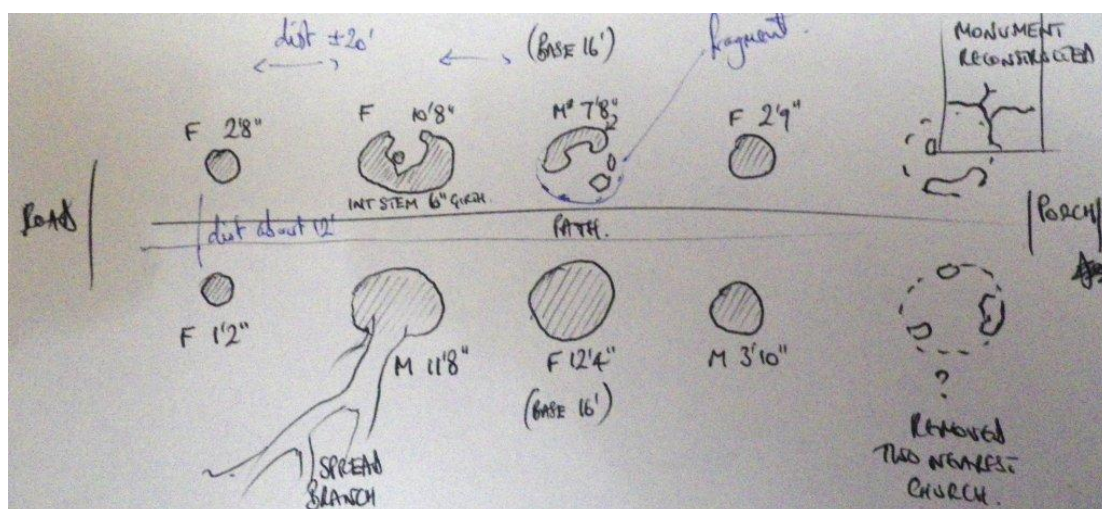 dist ±20'
(BASE 16')
fragment.
MONUMENT
RECONSTRUCTED
F 2'8"
F 10'8"
M 7'8"
F 2'9"
INT STEM 6" GIRTH.
ROAD
dist about 12'
PATH.
PORCH
F 1'2"
M 11'8"
F 12'4"
(BASE 16')
M 3'10"
?
REMOVED
TWO NEAREST
CHURCH.
SPREAD
BRANCH